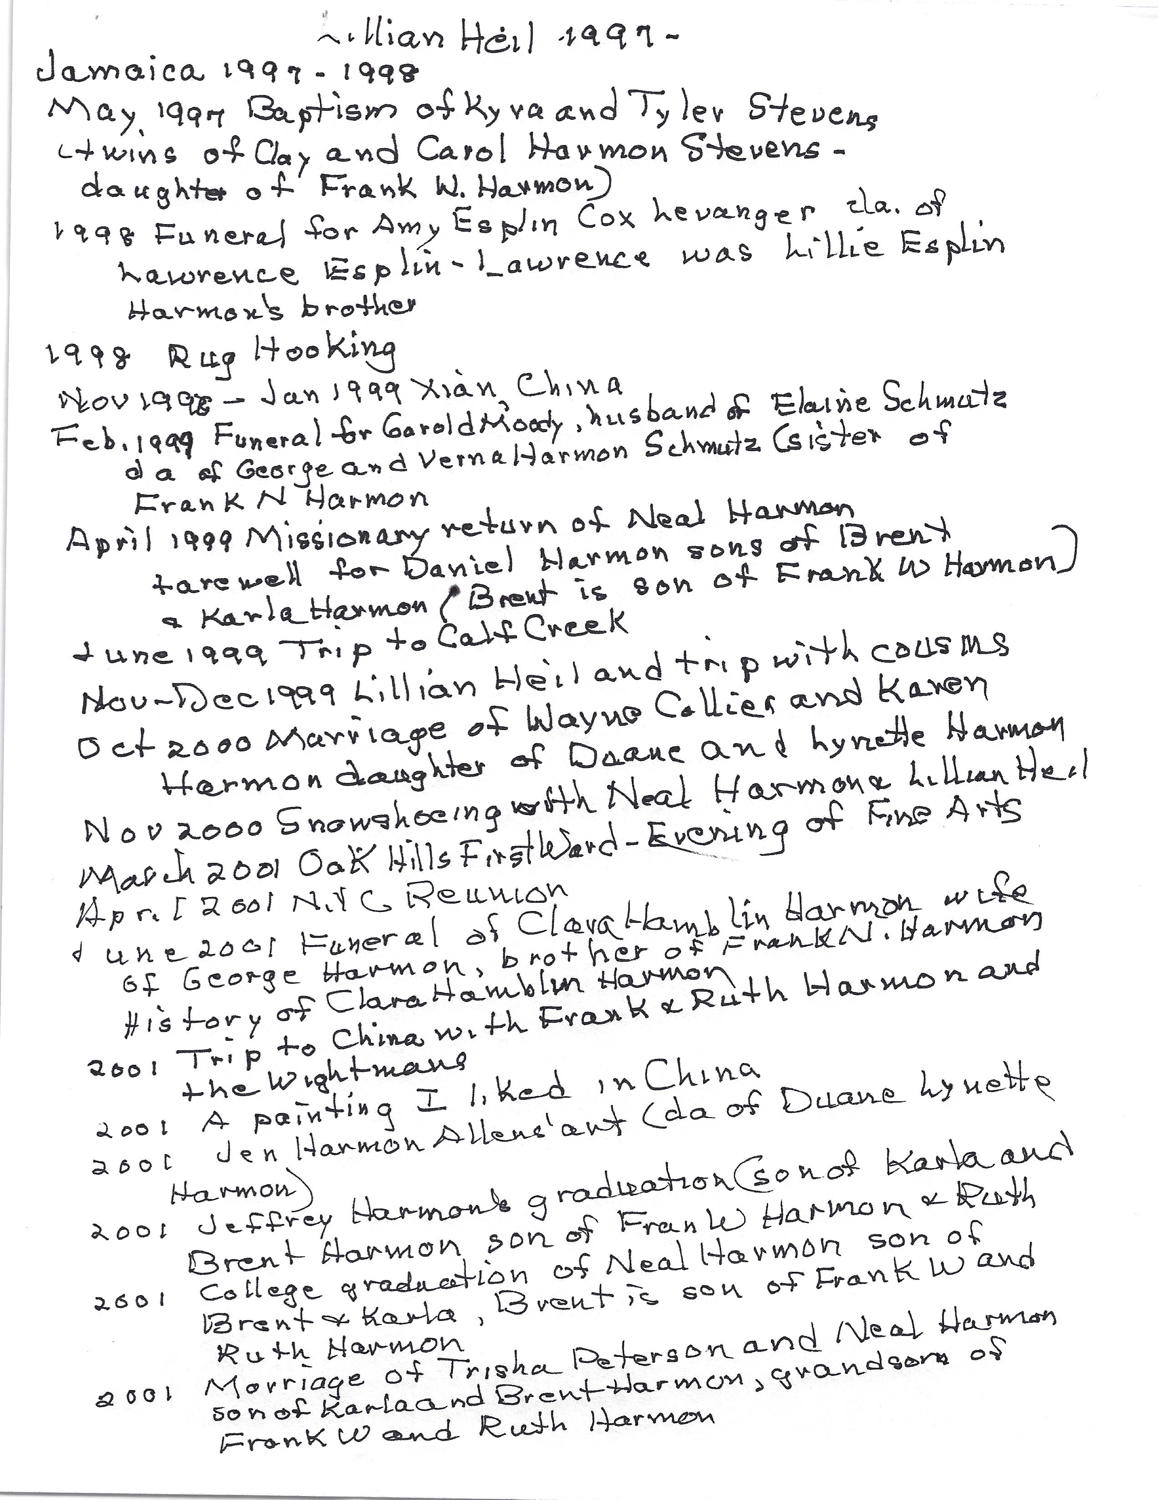 Lillian Heil 1997-
Jamaica 1997-1998
May, 1997 Baptism of Kyra and Tyler Stevens
(twins of Clay and Carol Harmon Stevens -
daughter of Frank W. Harmon)
1998 Funeral for Amy Esplin Cox Levanger da. of
Lawrence Esplin - Lawrence was Lillie Esplin
Harmon's brother
1998 Rug Hooking
Nov 1998 - Jan 1999 Xian, China
Feb. 1999 Funeral for Garold Moody, husband of Elaine Schmutz
da of George and Verna Harmon Schmutz (sister of
Frank N Harmon
April 1999 Missionary return of Neal Harmon
farewell for Daniel Harmon sons of Brent
& Karla Harmon (Brent is son of Frank W Harmon)
June 1999 Trip to Calf Creek
Nov-Dec 1999 Lillian Heil and trip with cousins
Oct 2000 Marriage of Wayne Collier and Karen
Harmon daughter of Duane and Lynette Harmon
Nov 2000 Snowshoeing with Neal Harmon & Lillian Heil
March 2001 Oak Hills First Ward - Evening of Fine Arts
April 2001 N.Y C Reunion
June 2001 Funeral of Clara Hamblin Harmon wife
of George Harmon, brother of Frank N. Harmon
History of Clara Hamblin Harmon
2001 Trip to China with Frank & Ruth Harmon and
the Wightmans
2001 A painting I liked in China
2001 Jen Harmon Allens' art (da of Duane Lynette
Harmon)
2001 Jeffrey Harmon's graduation (son of Karla and
Brent Harmon son of Fran W Harmon & Ruth
2001 College graduation of Neal Harmon son of
Brent & Karla, Brent is son of Frank W and
Ruth Harmon
2001 Marriage of Trisha Peterson and Neal Harmon
son of Karla and Brent Harmon, grandson of
Frank W and Ruth Harmon